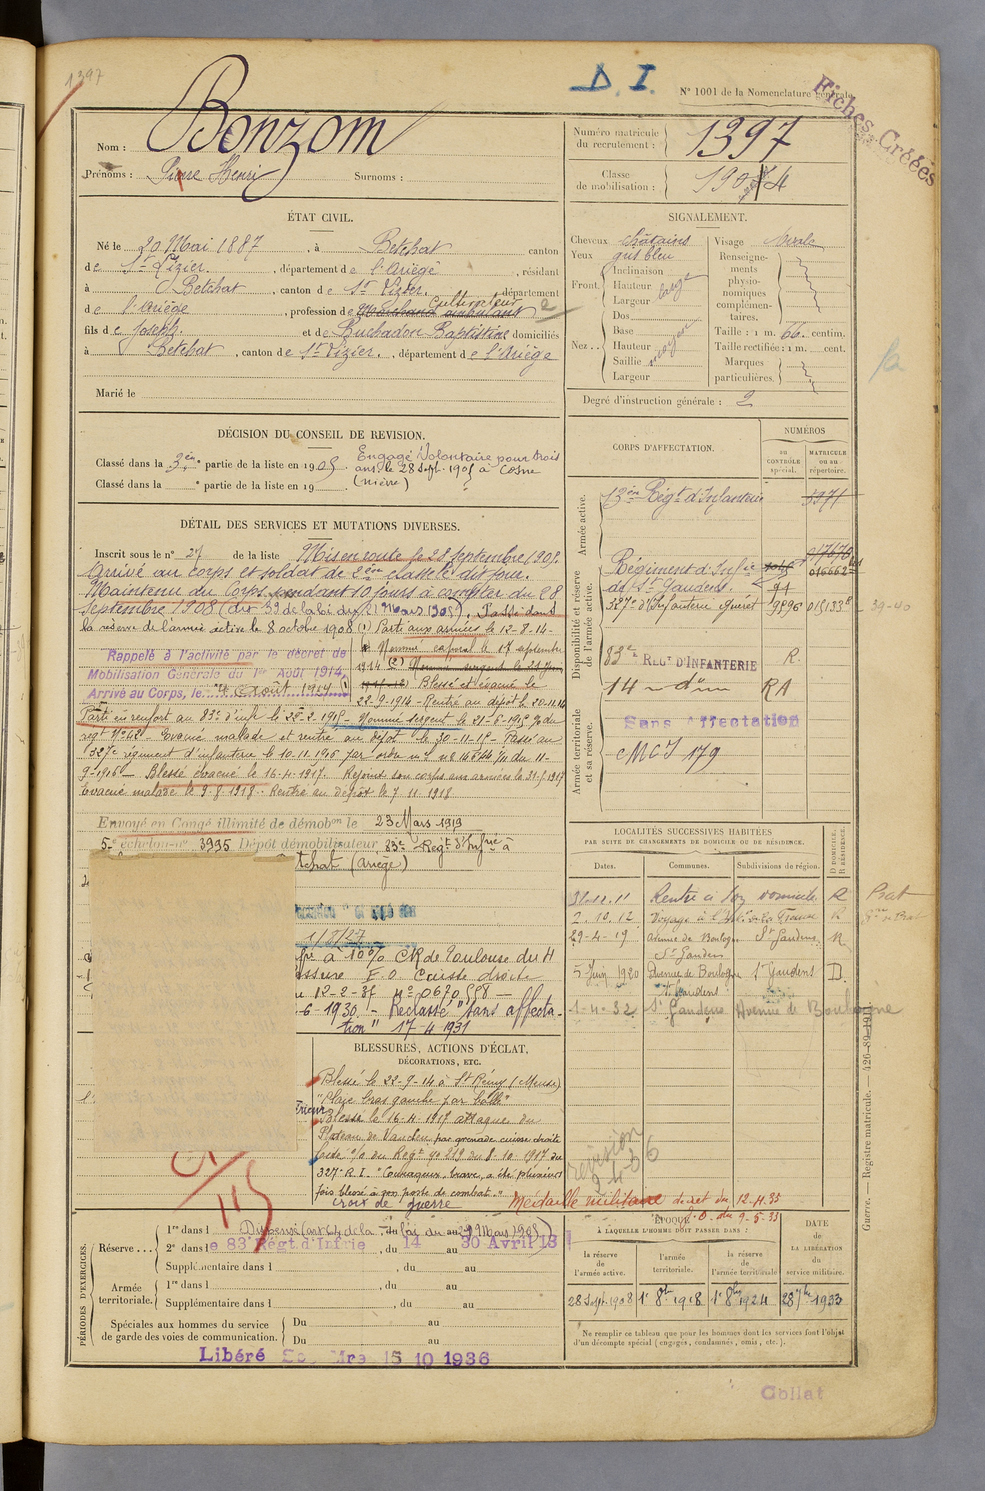 1397
D. I.
N° 1001 de la Nomenclature générale.
Fiches Créées
Nom : Bonzom
Prénoms : Pierre Henri Surnoms :
Numéro matricule du recrutement : 1397
Classe de mobilisation : 1904
ÉTAT CIVIL.
Né le 20 Mai 1887, à Betchat canton
de St Lizier, département de l'Ariège, résidant
à Betchat, canton de St Lizier, département
de l'Ariège, profession de Marchand ambulant Cultivateur 2
fils de Joseph et de Buchadore Baptistine domiciliés
à Betchat, canton de St Lizier, département de l'Ariège
Marié le
SIGNALEMENT.
Cheveux châtains
Yeux gris bleu
Front. Inclinaison
Hauteur
Largeur large
Nez... Dos
Base
Hauteur moyenne
Saillie
Largeur
Visage ovale
Renseignements physionomiques complémentaires.
Taille : 1 m. 66 centim.
Taille rectifiée : 1 m. cent.
Marques particulières.
Degré d'instruction générale : 2
DÉCISION DU CONSEIL DE REVISION.
Classé dans la 3em partie de la liste en 1905. Engagé Volontaire pour trois
ans le 28 Sept. 1905 à Cosne
Classé dans la e partie de la liste en 19 (Nièvre)
DÉTAIL DES SERVICES ET MUTATIONS DIVERSES.
Inscrit sous le n° 27 de la liste Mis en route le 28 Septembre 1905.
Arrivé au corps et soldat de 2ème classe le dit jour.
Maintenu au Corps pendant 10 jours à compter du 28
Septembre 1908 (art 39 de la loi du 21 Mars 1905). Passé dans
la réserve de l'armée active le 8 octobre 1908 (1) Parti aux armées le 12-8-14-
Rappelé à l'activité par le décret de
Mobilisation Générale du 1er Août 1914,
Arrivé au Corps, le 4 Août 1914 (1)
Nommé caporal le 17 septembre
1914 (2) Nommé sergent le 21 Juin
Blessé et évacué le
22-9-1914 - Rentré au dépôt le 20-11-14
Parti en renfort au 83e d'inf le 28-2-1915 - Nommé Sergent le 21-6-1915 Jo du
regt N° 42. Evacué malade et rentré au dépôt le 30-11-15 - Passé au
327e régiment d'infanterie le 10-11-1916 par ordre n° 14844 1/11 du 11-
9-1916 - Blessé évacué le 16-4-1917. Rejoint son corps aux armées le 31-5-1917
Evacué malade le 9-8-1918. Rentré au dépôt le 7 11-1918
Envoyé en Congé illimité de démobon le 23 Mars 1919
5e échelon n° 3995 Dépôt démobilisateur 83e Régt d'Infrie à
Betchat (Ariège)
1/8/27
à 10% CR de Toulouse du H
F.O Cuisse droite
12-2-35 n° 0670558 -
6-1930. - Reclassé "sans affecta-
tion" 17-4-1931
CORPS D'AFFECTATION.
NUMÉROS
AU CONTRÔLE spécial.
MATRICULE ou au répertoire.
Armée active.
13em Régt d'Infanterie 3971
Disponibilité et réserve de l'armée active.
Régiment d'Infie
de St Gaudens. 016662
327e d'Infanterie Guéret 9596 39-40
83e RÉGT D'INFANTERIE R.
14 RA
Armée territoriale et sa réserve.
Sans Affectation
MCI 179
LOCALITÉS SUCCESSIVES HABITÉES
PAR SUITE DE CHANGEMENTS DE DOMICILE OU DE RÉSIDENCE.
Dates. Communes. Subdivisions de région. D DOMICILE. R RÉSIDENCE.
31.10.11 Rentré à son domicile R Prat
2.10.12 Voyage à l'Int. de la France R
29-4-19 avenue de Boulogne St Gaudens St Gaudens R
5 Juin 1920 Avenue de Boulogne St Gaudens St Gaudens D.
1-4-32 St Gaudens Avenue de Boulogne
BLESSURES, ACTIONS D'ÉCLAT,
DÉCORATIONS, ETC.
Blessé le 22-9-14 à St Rémy (Meuse)
"Plaie bras gauche par balle"
Blessé le 16-4-1917 attaque du
Plateau de Vauclerc par grenade cuisse droite
Cité à l'o. du Régt n° 219 du 8-10-1917 du
327e R.I. "Courageux, brave, a été plusieurs
fois blessé à son poste de combat."
Croix de guerre
Médaille militaire décret du 12-4-33
J.O. du 9-5-33
révision
9-4-36
PÉRIODES D'EXERCICES.
Réserve... 1re dans l Dispensé (art 64 de la loi du 21 Mars 1905)
2e dans le 83e Régt. d'Infrie, du 14 au 30 Avril 13
Supplémentaire dans l , du au
Armée territoriale. 1re dans l , du au
Supplémentaire dans l , du au
Spéciales aux hommes du service
de garde des voies de communication.
Du au
Du au
ÉPOQUE
À LAQUELLE L'HOMME DOIT PASSER DANS :
la réserve de l'armée active.
l'armée territoriale.
la réserve de l'armée territoriale
DATE DE LA LIBÉRATION du service militaire.
28 Sept. 1908 1er 8bre 1918 1er 8bre 1924 28 7bre 1933
Ne remplir ce tableau que pour les hommes dont les services font l'objet
d'un décompte spécial (engagés, condamnés, omis, etc.).
Libéré 15 10 1936
Guerre. — Registre matricule. — 426-89-191
Collat